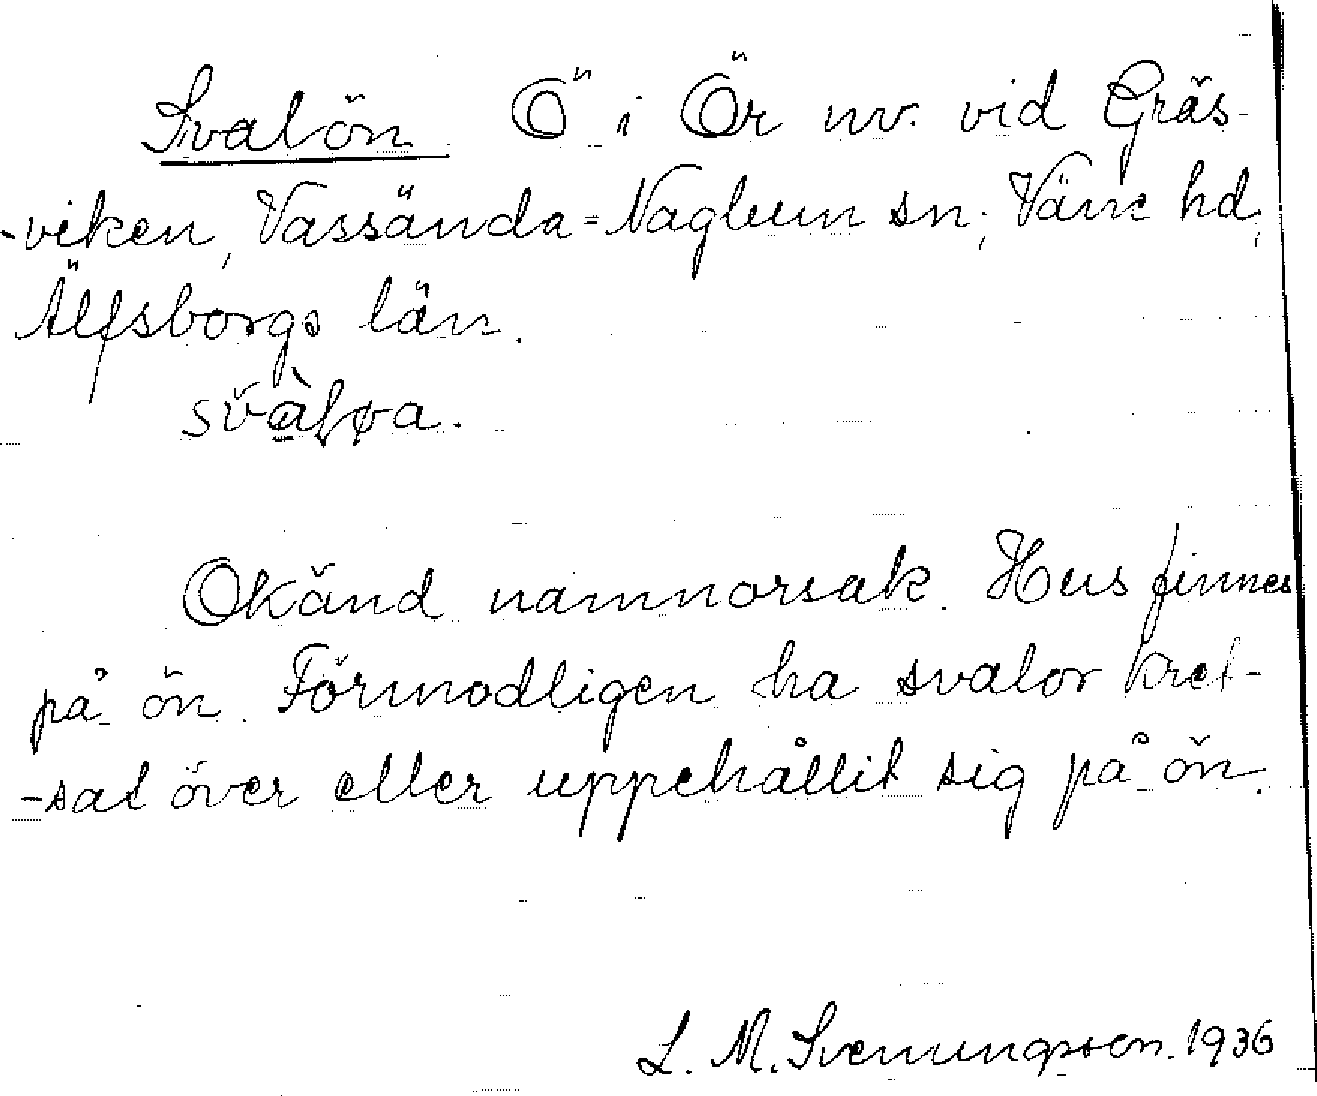 Svalön Ö i Ör nv. vid Gräs-
-viken, Vassända=Naglum sn; Väne hd;
Älfsborgs län.
Okänd namnorsak. Hus finnes
på ön. Förmodligen ha svalor kret-
-sat över eller uppehållit sig på ön.
L. M. Svenungsson. 1936